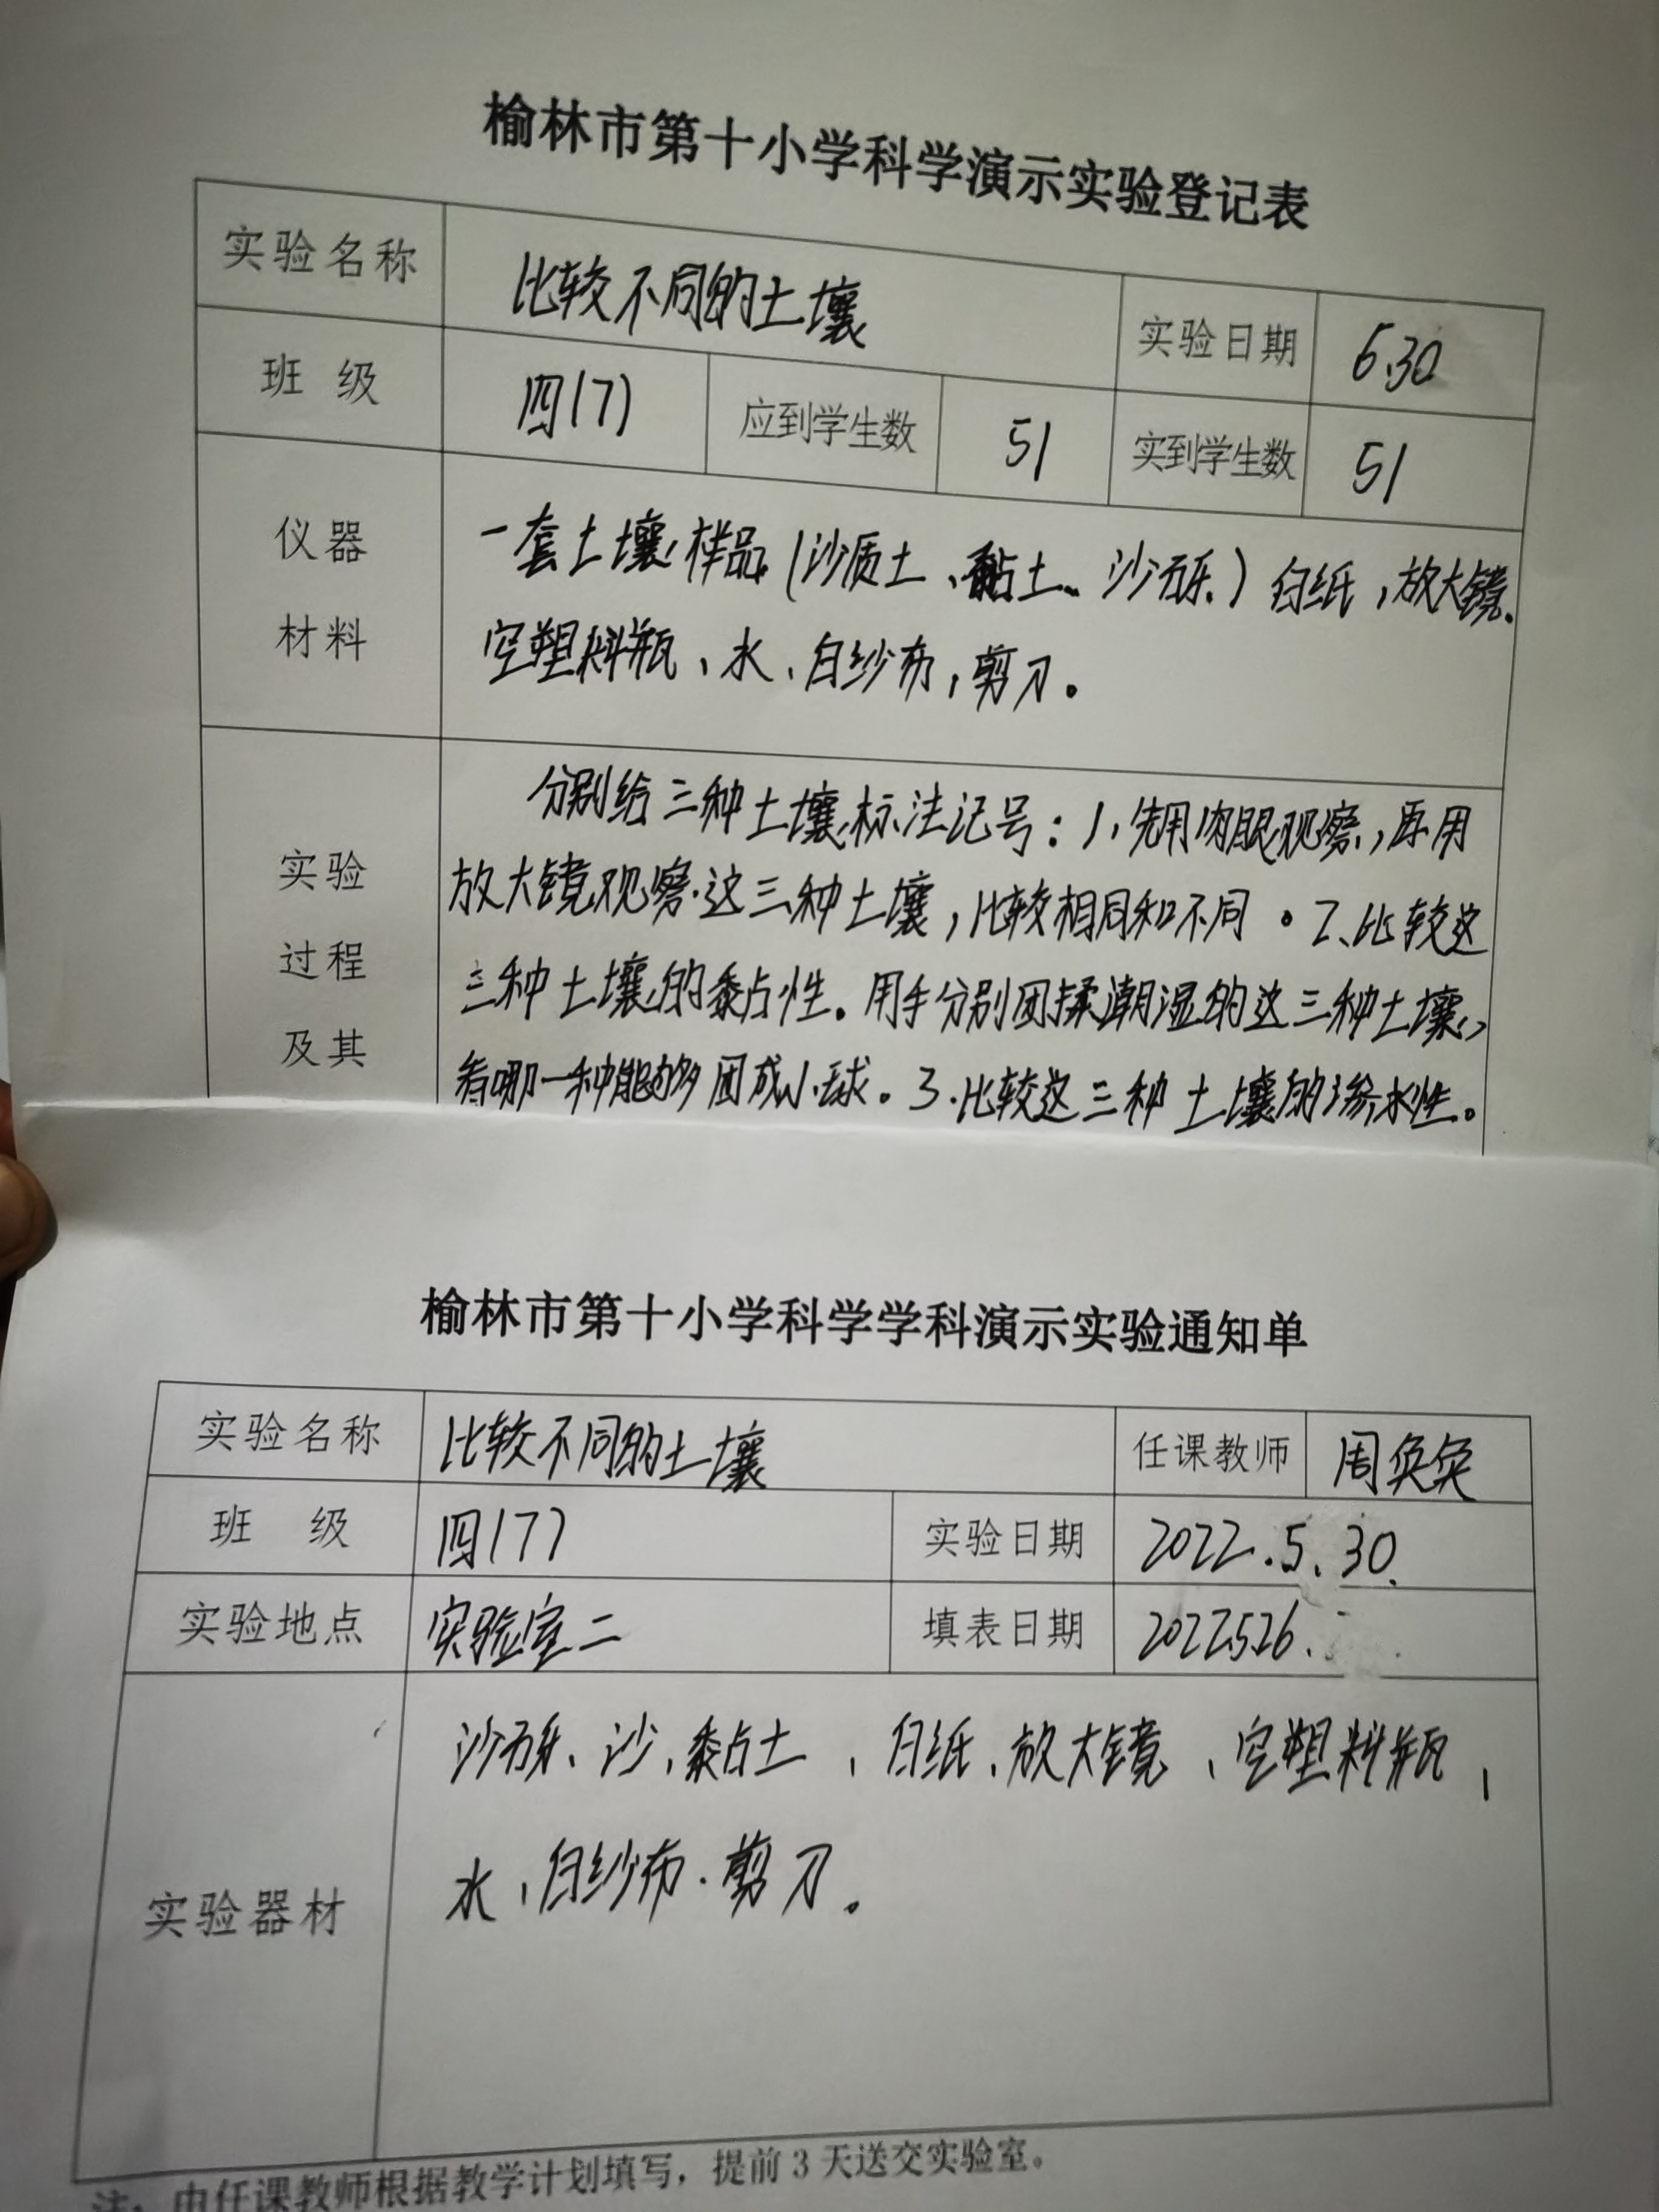 榆林市第十小学科学演示实验登记表
实验名称 比较不同的土壤 实验日期 6.30
班 级 四(7) 应到学生数 51 实到学生数 51
仪器 一套土壤样品(沙质土、黏土、沙砾)白纸,放大镜、
材料 空塑料瓶、水、白纱布,剪刀。
分别给三种土壤标法记号:1,先用肉眼观察,再用
实验 放大镜观察这三种土壤,比较相同和不同。2、比较这
过程 三种土壤的黏性。用手分别团揉潮湿的这三种土壤,
及其 看哪一种能够团成小球。3.比较这三种土壤的渗水性。
榆林市第十小学科学学科演示实验通知单
实验名称 比较不同的土壤 任课教师 周奂奂
班 级 四(7) 实验日期 2022.5.30.
实验地点 实验室二 填表日期 2022526.
沙砾、沙,黏土,白纸、放大镜、空塑料瓶,
水,白纱布.剪刀。
实验器材
注:由任课教师根据教学计划填写,提前3天送交实验室。